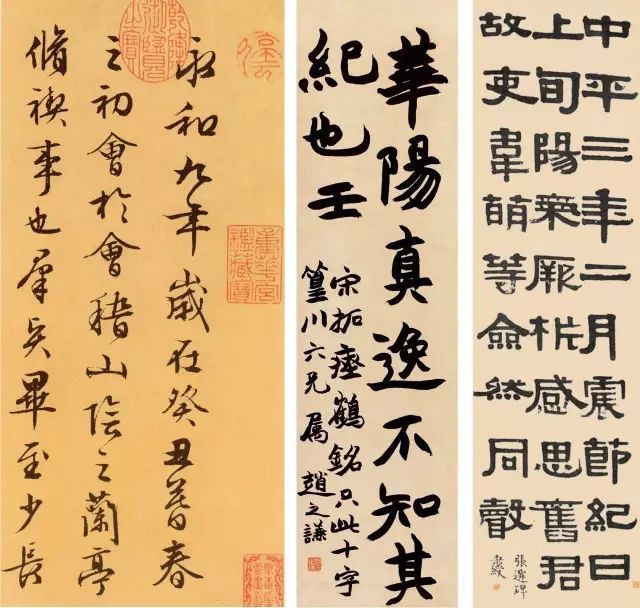 永和九年歲在癸丑暮春
之初會於會稽山陰之蘭亭
脩禊事也羣賢畢至少長
重華宮鑑藏寶
華陽真逸不知其
紀也壬
宋拓瘞鶴銘只此十字
篁川六兄屬 趙之謙
中平三年二月震節紀日
上旬陽氣厥析感思舊君
故吏韋萌等僉然同聲
張遷碑